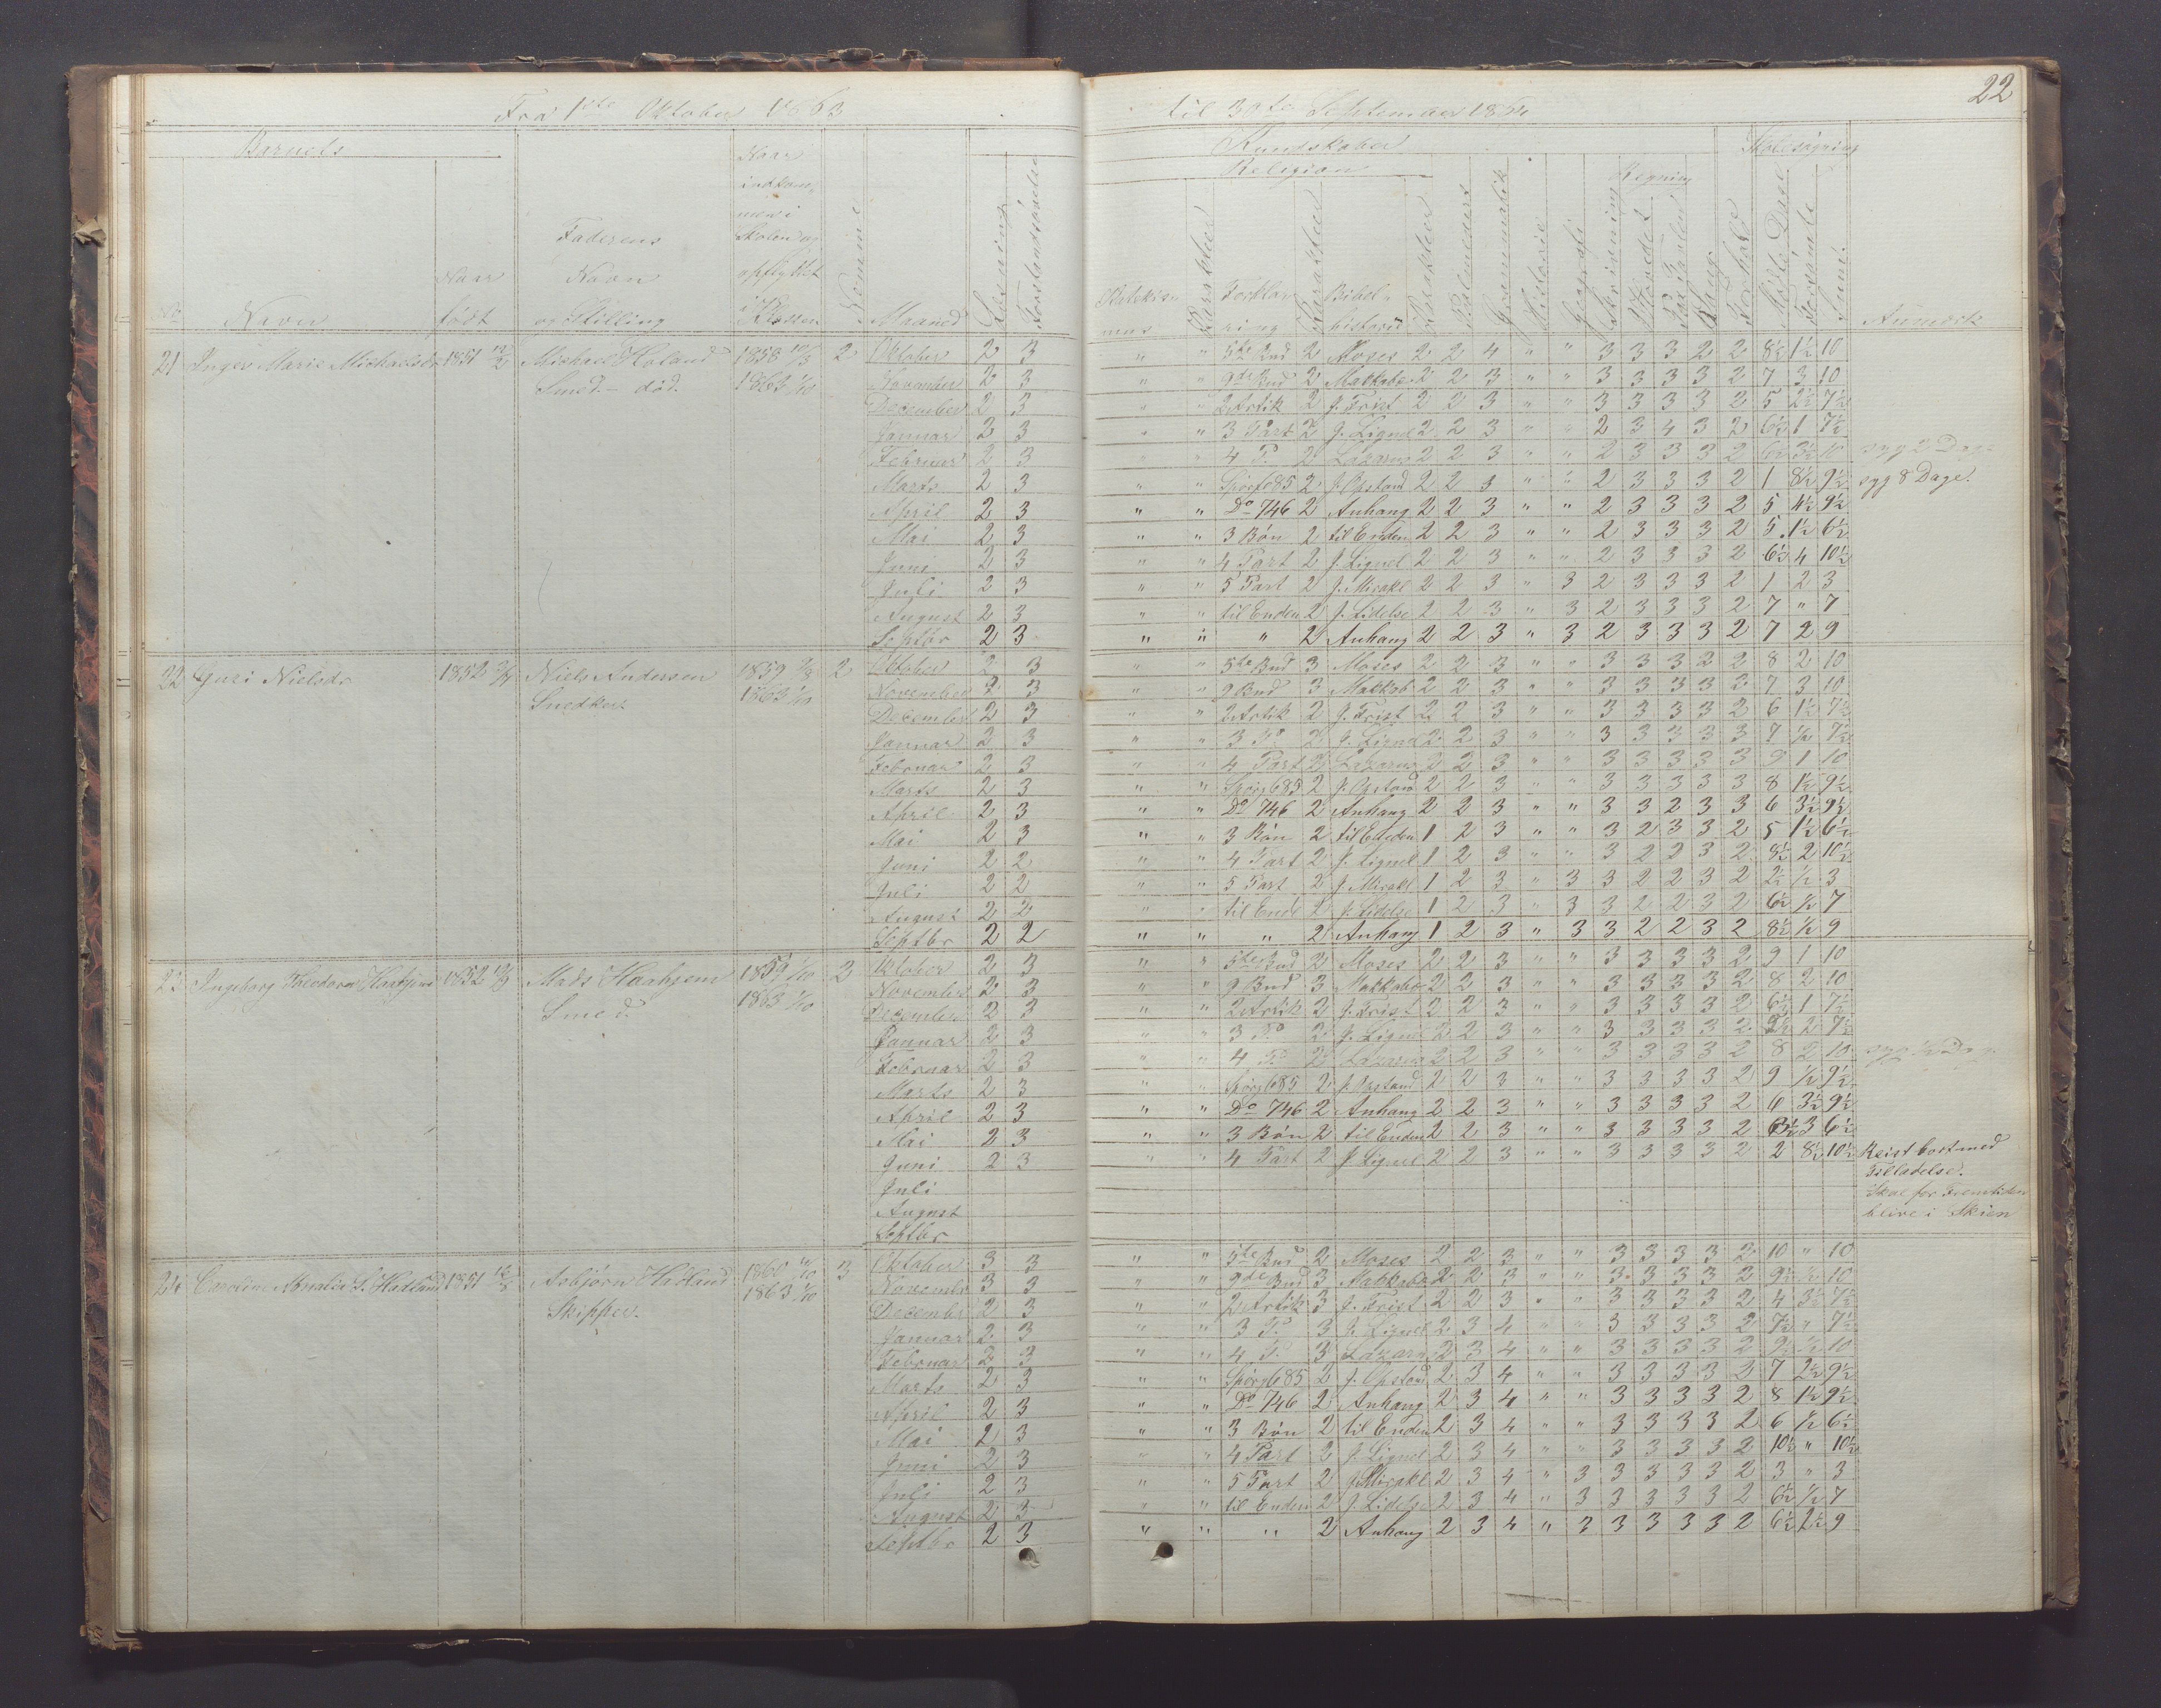 22
Fra 1ste Oktober 1863 til 30te September 1864
Barnets
No
Navn
Naar født
Faderens Navn og Stilling
Naar indkommen i Skolen og opflyttet i Klassen
Nemme
Maaned
Læsning
Forstandsøvelse
Kundskaber
Religion
Karakter
Forklaring
Karakter
Bibelhistorie
Karakter
Grammatik
Historie
Geografi
Skrivning
Regning
Hovedet
Paa Tavlen
Sang
Forhold
Skolesøgning
Mødte Dage
Forsømte
Sum
Anmærk
21 Inger Marie Michaelsdr 1851 Michael Høland Smed - død. 1858 1863 1/10 2
Oktober 2 3 " " 5te Bud 2 Moses 2 2 4 " " 3 3 3 2 2 8½ 1½ 10
November 2 3 " " 9de Bud 2 Makkab 2 2 3 " " 3 3 3 3 2 7 3 10
December 2 3 " " 2 Artik 2 J. Frist 2 2 3 " " 3 3 3 3 2 5 2½ 7½
Januar 2 3 " " 3 Part 2 J. Lignel 2 2 3 " " 2 3 4 3 2 6½ 1 7½
Februar 2 3 " " 4 P. 2 Lazarus 2 2 3 " " 2 3 3 3 2 6½ 3½ 10 syg 2 Dage
Marts 2 3 " " Spørg 685 2 J. Opstand 2 2 3 " " 2 3 3 3 2 1 8½ 9½ syg 8 Dage.
April 2 3 " " Do 746 2 Anhang 2 2 3 " " 2 3 3 3 2 5 4½ 9½
Mai 2 3 " " 3 Bøn 2 til Enden 2 2 3 " " 2 3 3 3 2 5 1½ 6½
Juni 2 3 " " 4 Part 2 J. Lignel 2 2 3 " " 2 3 3 3 2 6½ 4 10½
Juli 2 3 " " 5 Part 2 J. Mirakl 2 2 3 " 3 2 3 3 3 2 1 2 3
August 2 3 " " til Enden 2 J. Lidelse 2 2 3 " 3 2 3 3 3 2 7 " 7
Septbr 2 3 " " " 2 Anhang 2 2 3 " 3 2 3 3 3 2 7 2 9
22 Guri Nielsdr 1852 Niels Andersen Snedker 1859 1863 1/10 2
Oktober 2 3 " " 5te Bud 3 Moses 2 2 3 " " 3 3 3 2 2 8 2 10
November 2 3 " " 9 Bud 3 Makkab 2 2 3 " " 3 3 3 3 2 7 3 10
December 2 3 " " 2 Artik 2 J. Frist 2 2 3 " " 3 3 3 3 2 6 1½ 7½
Januar 2 3 " " 3 P. 2 J. Lignel 2 2 3 " " 3 3 3 3 3 7 ½ 7½
Februar 2 3 " " 4 Part 2 Lazarus 2 2 3 " " 3 3 3 3 3 9 1 10
Marts 2 3 " " Spørg 685 2 J. Opstand 2 2 3 " " 3 3 3 3 3 8 1½ 9½
April 2 3 " " Do 746 2 Anhang 2 2 3 " " 3 3 2 3 3 6 3½ 9½
Mai 2 3 " " 3 Bøn 2 til Enden 1 2 3 " " 3 2 3 3 2 5 1½ 6½
Juni 2 2 " " 4 Part 2 J. Lignel 1 2 3 " " 3 2 2 3 2 8½ 2 10½
Juli 2 2 " " 5 Part 2 J. Mirakl 1 2 3 " 3 3 2 2 3 2 2½ ½ 3
August 2 2 " " til Ende 2 J. Lidelse 1 2 3 " 3 3 2 2 3 2 6½ ½ 7
Septbr 2 2 " " " 2 Anhang 1 2 3 " 3 3 2 2 3 2 8½ ½ 9
23 Ingeborg 1852 Mads Smed. 1859 1/10 1863 1/10 2
Oktober 2 3 " " 5te Bud 2 Moses 2 2 3 " " 3 3 3 3 2 9 1 10
November 2 3 " " 9 Bud 3 Makkab 2 2 3 " " 3 3 3 3 2 8 2 10
December 2 3 " " 2 Artik 2 J. Frist 2 2 3 " " 3 3 3 3 2 6½ 1 7½
Januar 2 3 " " 3 P. 2 J. Lignel 2 2 3 " " 3 3 3 3 2 2 7½
Februar 2 3 " " 4 P. 2 Lazarus 2 2 3 " " 3 3 3 3 2 8 2 10 syg
Marts 2 3 " " Spørg 685 2 J. Opstand 2 2 3 " " 3 3 3 3 2 9 ½ 9½
April 2 3 " " Do 746 2 Anhang 2 2 3 " " 3 3 3 3 2 6 3½ 9½
Mai 2 3 " " 3 Bøn 2 til Enden 2 2 3 " " 3 3 3 3 2 3½ 3 6½
Juni 2 3 " " 4 Part 2 J. Lignel 2 2 3 " " 3 3 3 3 2 2 8½ 10½ Reist bort med
Tilladelse.
Juli
Skal for Fremtiden
August
blive i Skien
Septbr
24 Caroline Amalie 1851 Asbjørn Skipper. 1860 1863 1/10 3
Oktober 3 3 " " 5te Bud 2 Moses 2 2 3 " " 3 3 3 3 2 10 " 10
November 3 3 " " 9de Bud 3 Makkab 2 2 3 " " 3 3 3 3 2 9½ ½ 10
December 2 3 " " 2 Artik 3 J. Frist 2 2 3 " " 3 3 3 3 2 4 3½ 7½
Januar 2 3 " " 3 P. 3 J. Lignel 2 3 4 " " 3 3 3 3 2 7½ " 7½
Februar 2 3 " " 4 P. 3 Lazarus 2 3 4 " " 3 3 3 3 2 9½ ½ 10
Marts 2 3 " " Spørg 685 2 J. Opstand 2 3 4 " " 3 3 3 3 2 7 2½ 9½
April 2 3 " " Do 746 2 Anhang 2 3 4 " " 3 3 3 3 2 8 1½ 9½
Mai 2 3 " " 3 Bøn 2 til Enden 2 3 4 " " 3 3 3 3 2 6 ½ 6½
Juni 2 3 " " 4 Part 2 J. Lignel 2 3 4 " " 3 3 3 3 2 10½ " 10½
Juli 2 3 " " 5 Part 2 J. Mirakl 2 3 4 " 3 3 3 3 3 2 3 " 3
August 2 3 " " til Enden 2 J. Lidelse 2 3 4 " 3 3 3 3 3 2 6½ ½ 7
Septbr 2 3 " " " 2 Anhang 2 3 4 " 3 3 3 3 3 2 6½ 2½ 9